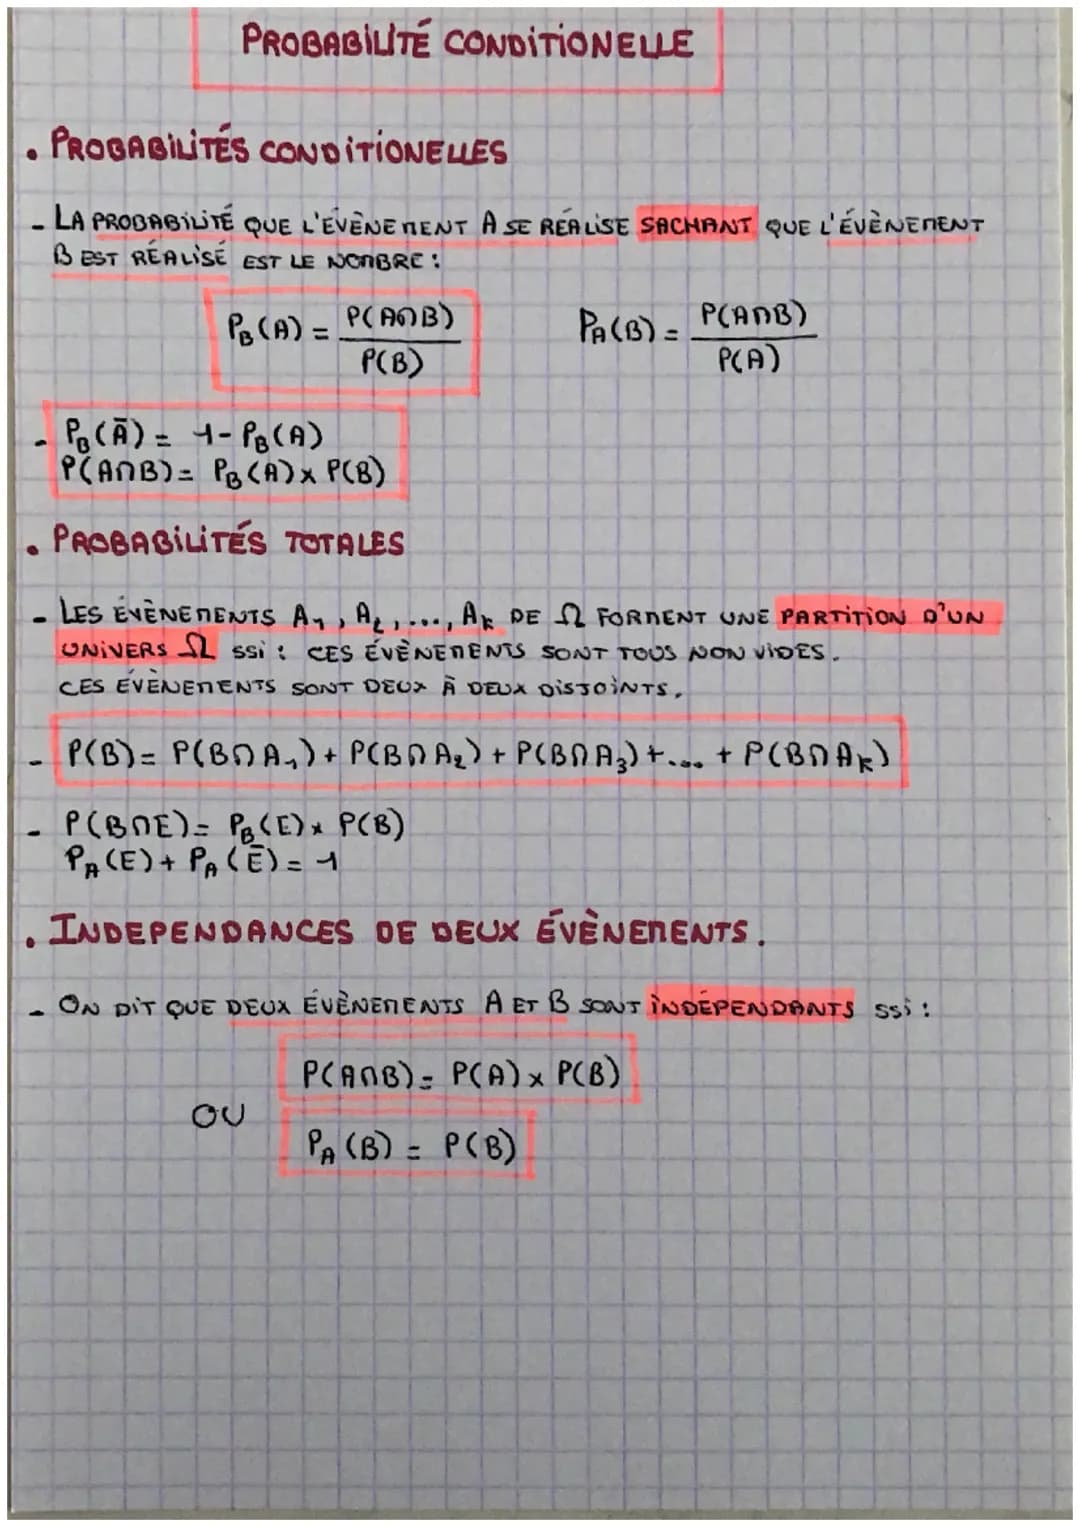 PROBABILITÉ CONDITIONELLE
• PROBABILITÉS CONDITIONELLES
- LA PROBABILITÉ QUE L'ÉVÈNEMENT A SE RÉALISE SACHANT QUE L'ÉVÈNEMENT
B EST RÉALISÉ EST LE NOMBRE :
P_B(A) = P(A∩B) / P(B)    P_A(B) = P(A∩B) / P(A)
- P_B(Ā) = 1 - P_B(A)
P(A∩B) = P_B(A) × P(B)
• PROBABILITÉS TOTALES
- LES ÉVÈNEMENTS A₁, A₂, ..., Aₖ DE Ω FORMENT UNE PARTITION D'UN
UNIVERS Ω ssi : CES ÉVÈNEMENTS SONT TOUS NON VIDES.
CES ÉVÈNEMENTS SONT DEUX À DEUX DISJOINTS.
- P(B) = P(B∩A₁) + P(B∩A₂) + P(B∩A₃) + ... + P(B∩Aₖ)
- P(B∩E) = P_B(E) × P(B)
P_A(E) + P_A(Ē) = 1
• INDEPENDANCES DE DEUX ÉVÈNEMENTS.
- ON DIT QUE DEUX ÉVÈNEMENTS A ET B SONT INDÉPENDANTS ssi :
P(A∩B) = P(A) × P(B)
OU
P_A(B) = P(B)